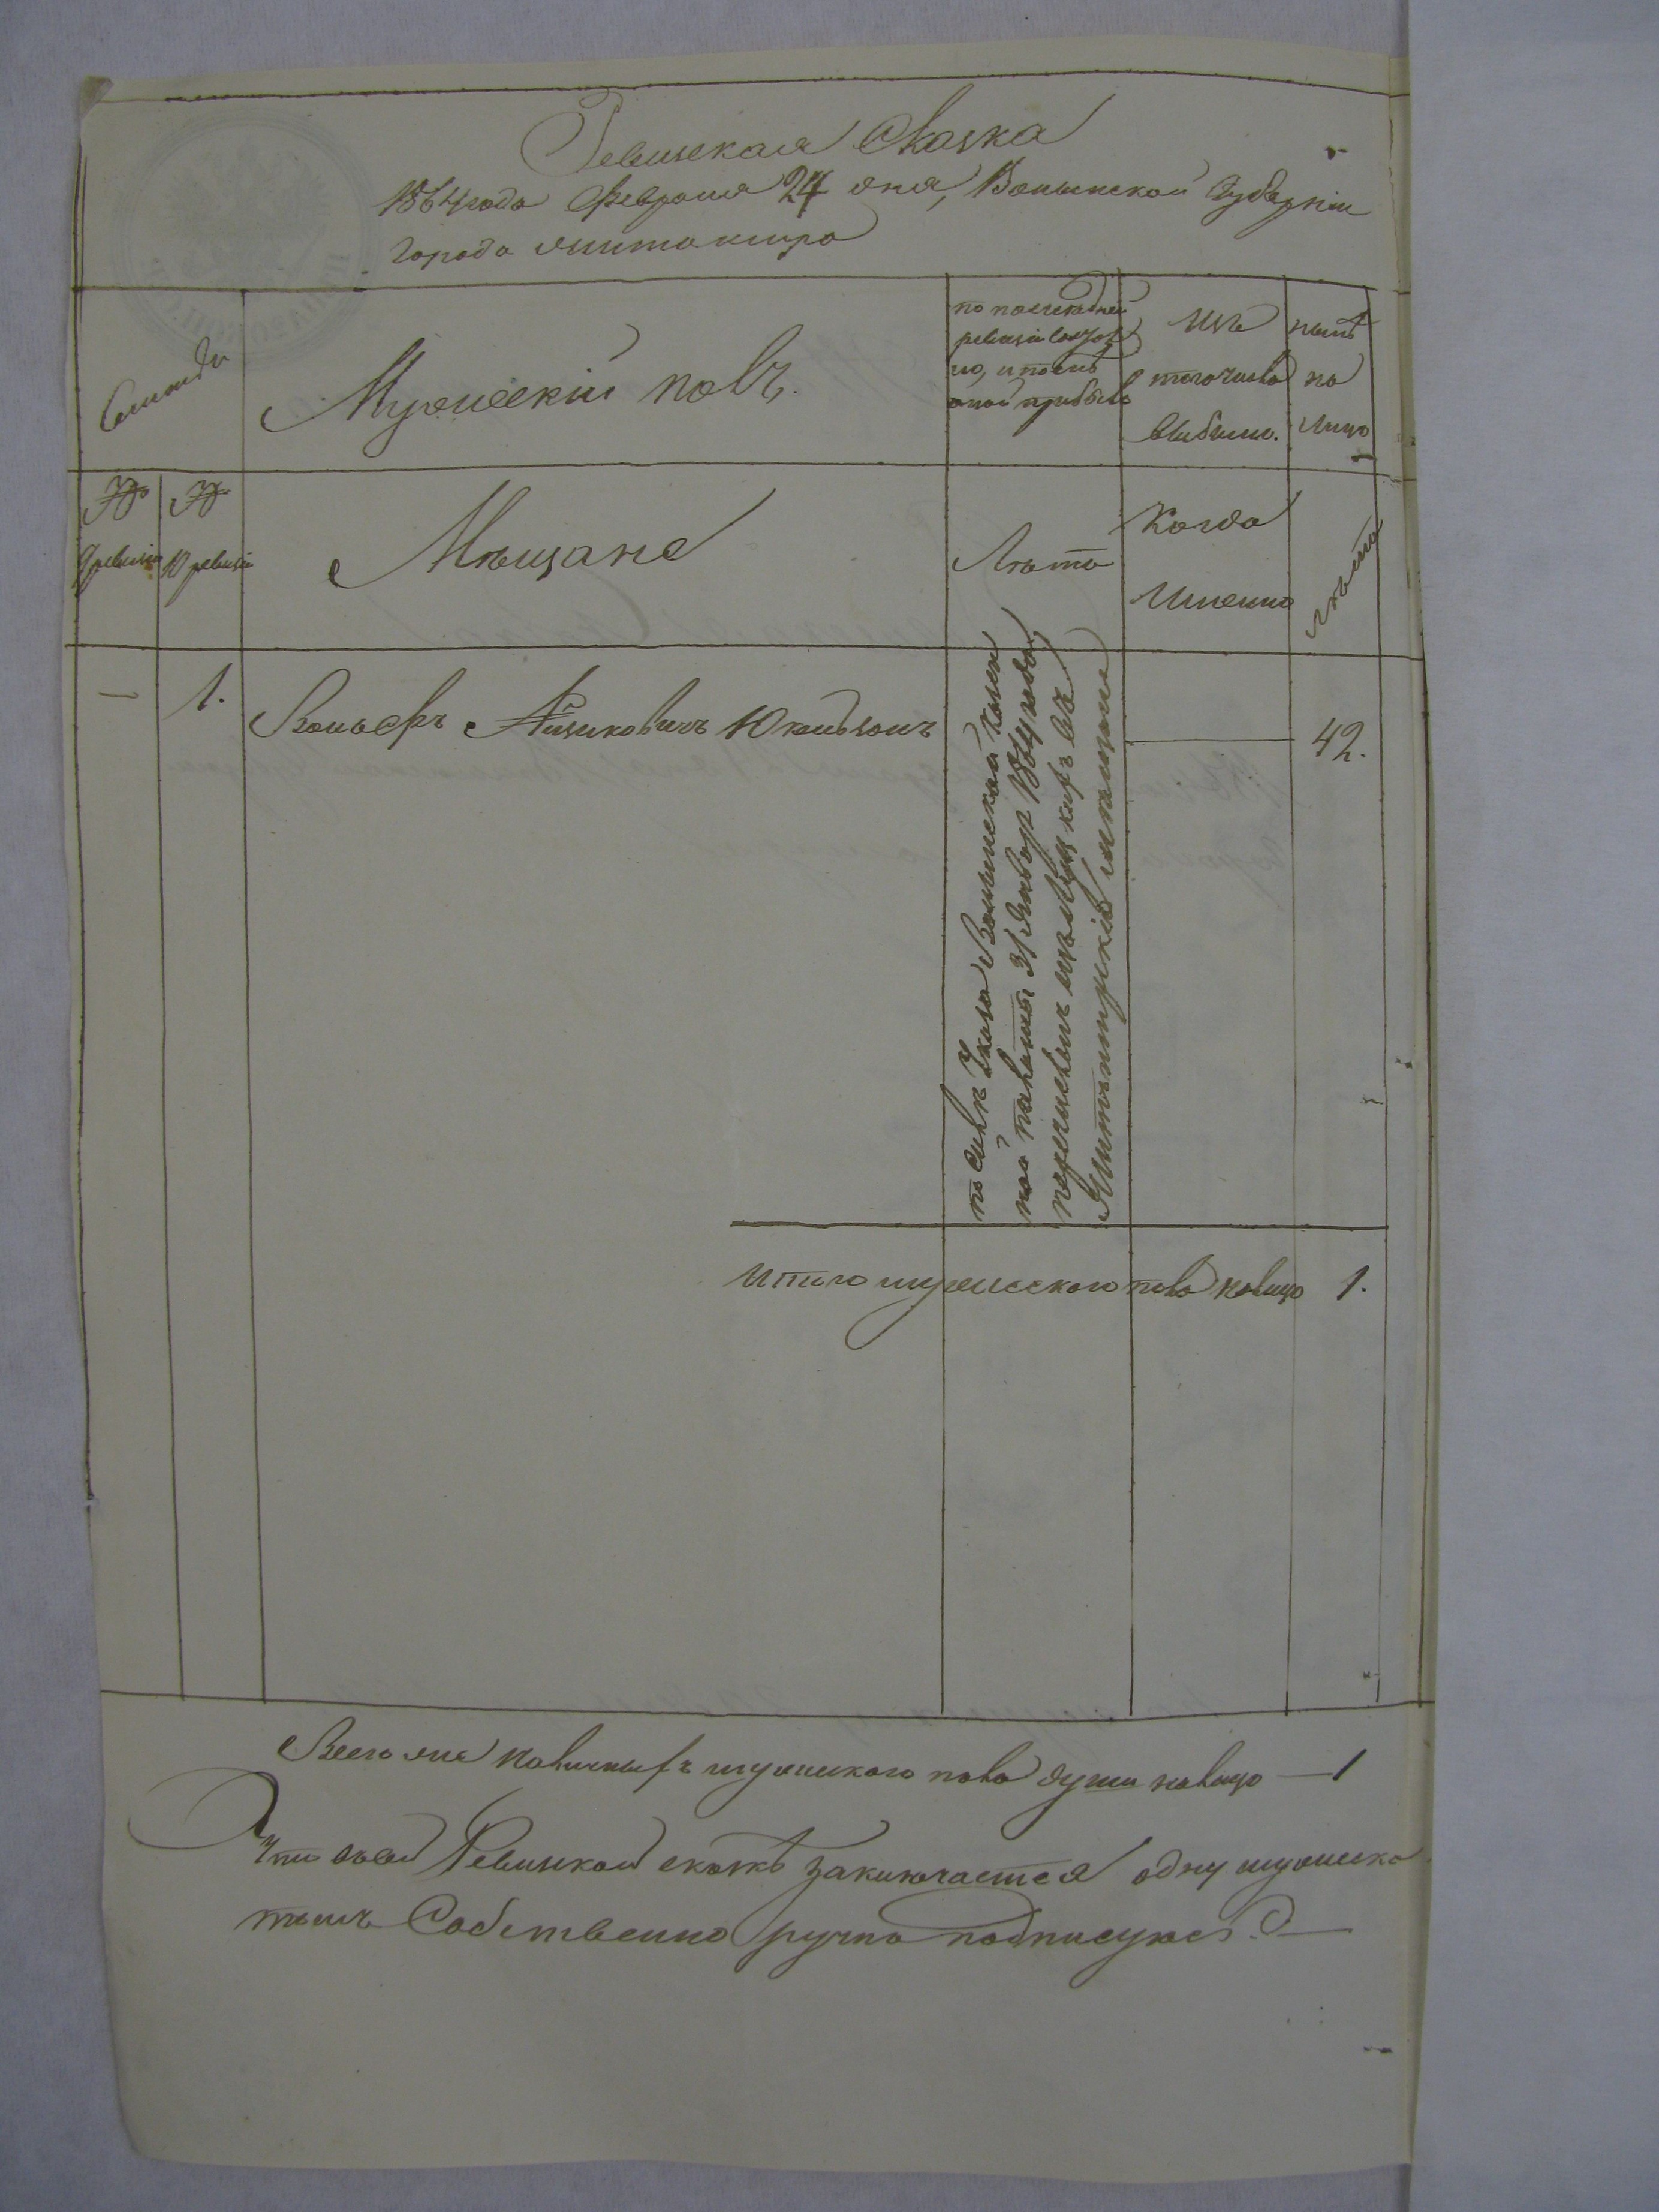 Ревизская Сказка
1864 года Февраля 24 дня, Волынской Губернiи
Города Житомира
Семьи
Мужескiй полъ.
по последней
ревизiи состоя
ло, и послѣ
оной прибыло
Изъ
того числа
выбыло.
нынѣ
на
лицо
№
9 ревизiи
№
10 ревизiи
Мѣщане
Лѣта
Когда
Именно
Лѣта
—
1.
Вольфъ Айзиковичъ Юкельзонъ
по силѣ Указа Волынской Казен
ной палаты 31 Января 1864 года
перечисленъ изъ
Житомирскiе мѣщане
42.
Итого мужеского пола налицо 1.
Всего же наличныхъ мужского пола души налицо — 1
Что въ сей Ревизкой сказкѣ заключается одну мужска
Собственно ручно подписуюсь